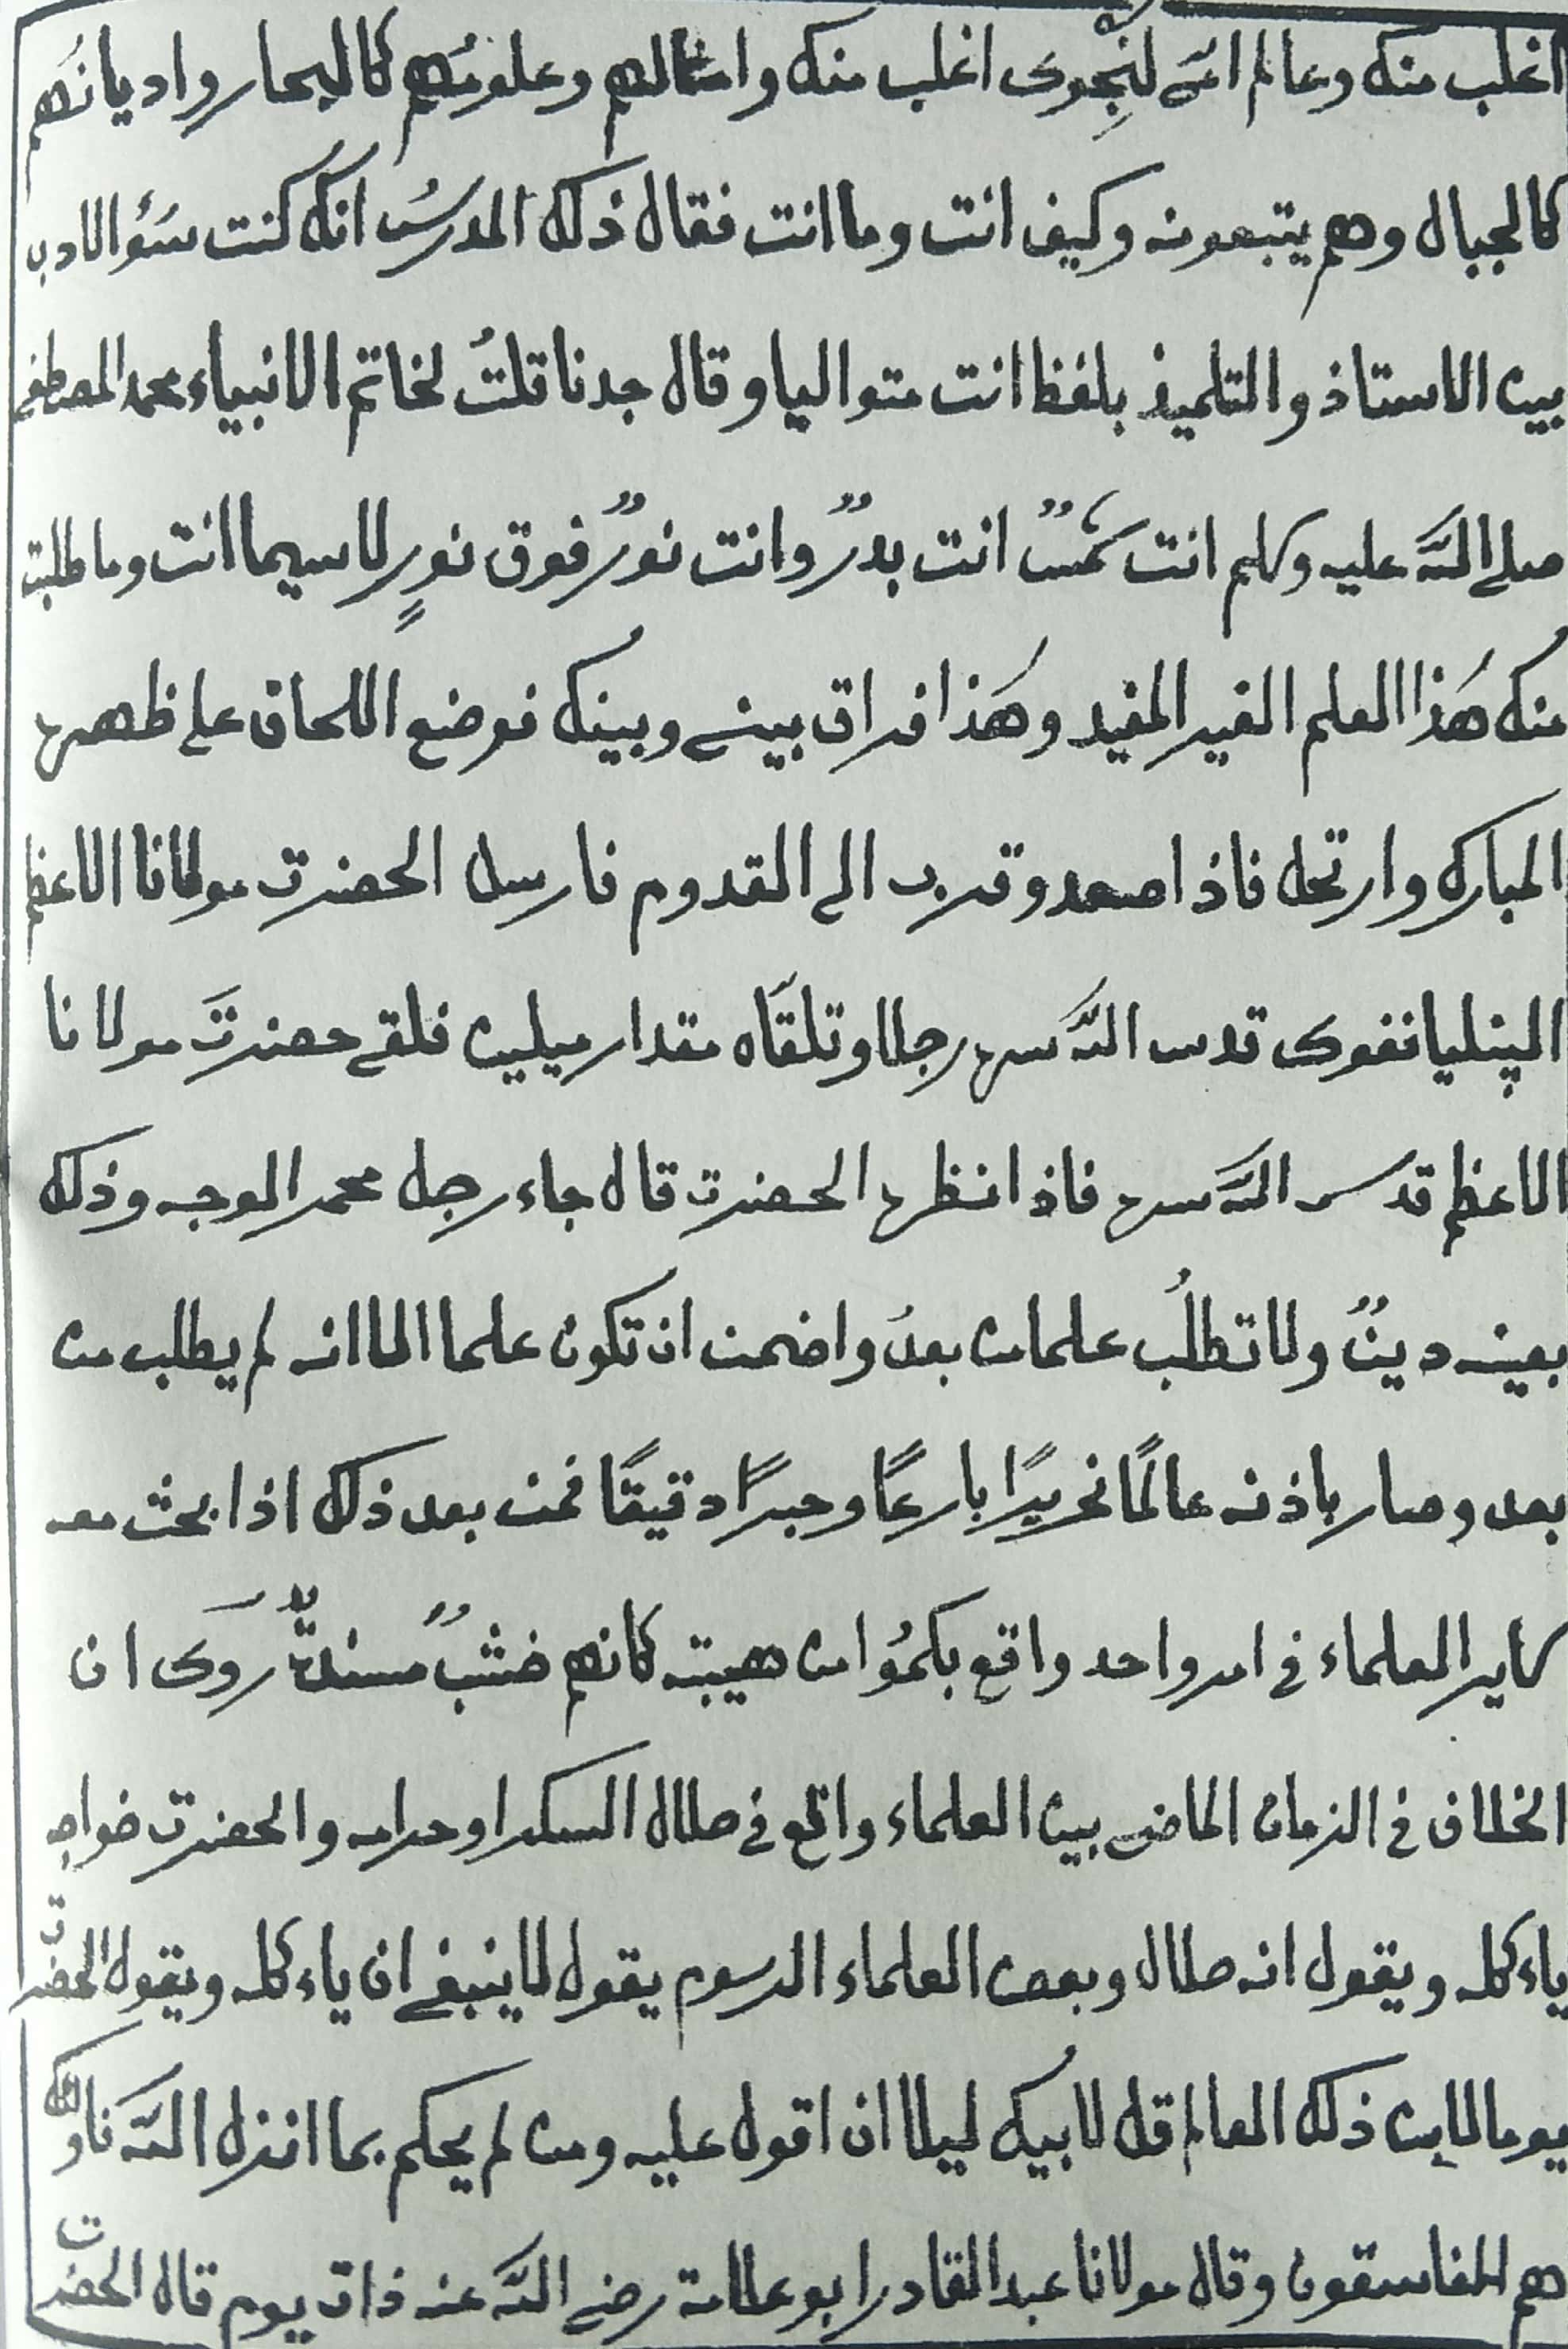 اغلب منك وعالم اشے لنجوى اغلب منك وامثالهم وعلومهم كالبحار واديانهم
كالجبال وهم يتبعونه وكيف انت وما انت فقال ذلك المدرس انك كنت سؤالادب
بين الاستاذ والتلميذ بلفظ انت متواليا وقال جدنا قلتُ لخاتم الانبياء محمد المصطفے
صلے اللّه عليه وسلم انت شمسٌ انت بدرٌ وانت نورٌ فوق نورٍ لاسيما انت وما طلبت
منك هَذا العلم الغير المفيد وهَذا فراق بينے وبينك فوضع اللحاف علے ظهره
المبارك وارتحل فاذا صعد وقرب الى القدوم فارسل الحضرت مولانا الاعظم
الپنليانغوى قدس اللّه سره رجلا وتلقاه مقدار ميلين فلقے حضرتَ مولانا
الاعظم قدس اللّه سره فاذا نظره الحضرت قال جاء رجل محمر الوجه وذلك
بعينه دينٌ ولا تطلُب علما من بعد واضمن ان تكون علما الا انه لم يطلب من
بعد وصار باذنه عالمًا نحريرًا بارعًا وحبرًا دقيقًا فمن بعد ذلك اذا بحث معه
سايرالعلماء فى امر واحد واقع بكمُوا من هيبته كانهم خشبٌ مسندةٌ رَوى ان
الخلاف فى الزمان الماضى بين العلماء واقع فى حلال السكر او حرامه والحضرت خواجه
ياءكله ويقول انه حلال وبعض العلماء الرسوم يقول لاينبغے ان ياءكله ويقول الحضرت
يوما لابن ذلك العالم قل لابيك ليلا ان اقول عليه ومن لم يحكم بما انزل اللّه فاولئك
هم الفاسقون وقال مولانا عبدالقادر ابو علامة رضے اللّه عنه ذات يوم قال الحضرت